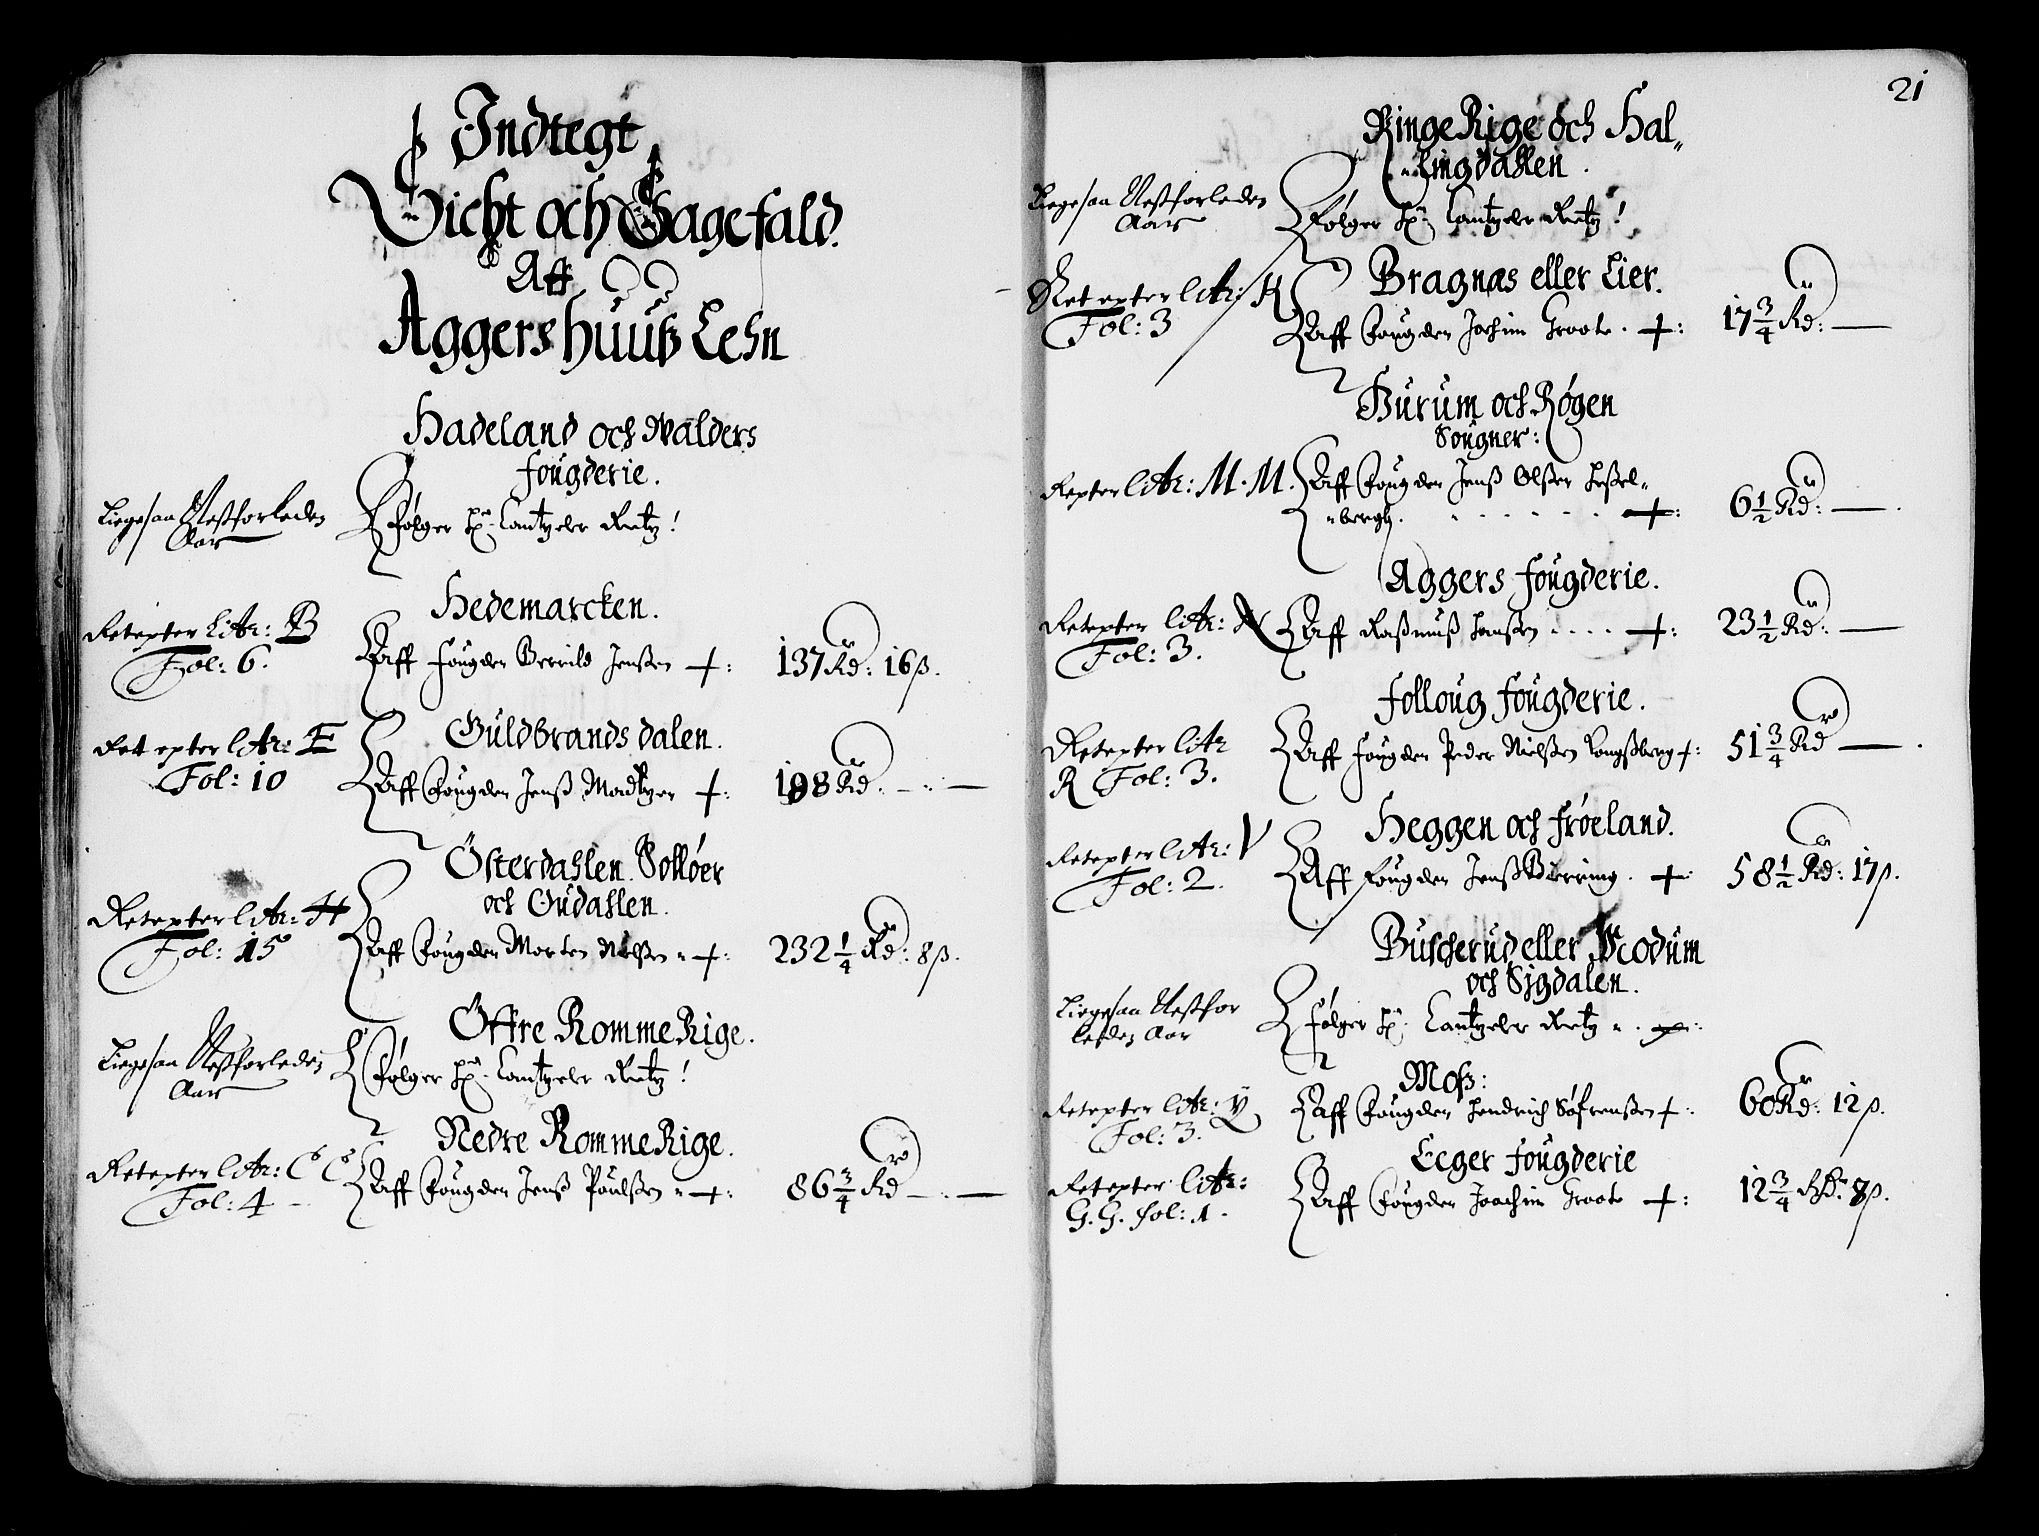 Indtegt
Sicht och Sagefald.
Aff
Aggershuuß Lehn
Hadeland och Walders
fougderie.
Ligesaa Nestforleden
Aar
Følger Hr. Cantzeler Rietz!
Hedemarcken.
Ret epter Litr: B
Fol: 6.
Aff fougden Berrild Jenßen +:
137 Rd: 16 ß.
Guldbrandsdalen.
Ret epter litr: E
Fol: 10
Aff Fougden Jenß Madtzen +:
198 Rd. -:-
Österdahlen. Solløer
och Oudahlen.
Ret epter litr: H
Fol: 15
Aff Fougden Morten Nielßen - +:
232 1/4 Rd: 8 ß.
Öffre RommeRige.
Ligesaa Nestforleden
Aar
Følger Hr. Cantzeler Rietz!
Nedre RommeRige.
Ret epter litr: C C
Fol: 4 -
Aff Fougden Jenß Poulßen - +:
86 3/4 Rd -:-
21
RingeRige och Hal-
-lingdahlen.
Ligesaa Nestforleden
Aar
Følger Hr. Cantzeler Rietz!
Bragnæs eller Lier.
Ret epter litr: K
Fol: 3
Aff Fougden Jochim Groote. +:
17 3/4 Rd: -
Burum och Røgen
Sougner:
Repter litr: M. M.
Aff Fougden Jenß Olßen Heßel-
-bergh. +:
6 1/2 Rd: -.
Aggers fougderie.
Ret epter litr: N
Fol: 3.
Aff Raßmuß Hanßen .... +:
23 1/2 Rd: -
Folloug fougderie.
Ret epter litr
R Fol: 3.
Aff fougden Peder Nielßen Kongßberg +:
51 3/4 Rd -.
Heggen och Frøeland.
Ret epter litr: V
Fol: 2.
Aff Fougden Jenß Bierring. +:
58 1/2 Rd: 17 ß.
Buscherud eller Modum
och Sigdalen.
Ligesaa Nestfor
leden Aar
Følger Hr. Cantzeler Rietz
Moß:
Ret epter litr: Y
Fol: 3.
Aff Fougden Hendrich Søfrenßen +:
60 Rd: 12 ß.
Ecger fougderie
Ret epter litr:
G. G. fol: 1.
Aff Fougden Joachim Groote +:
12 3/4 Rd: 8 ß.